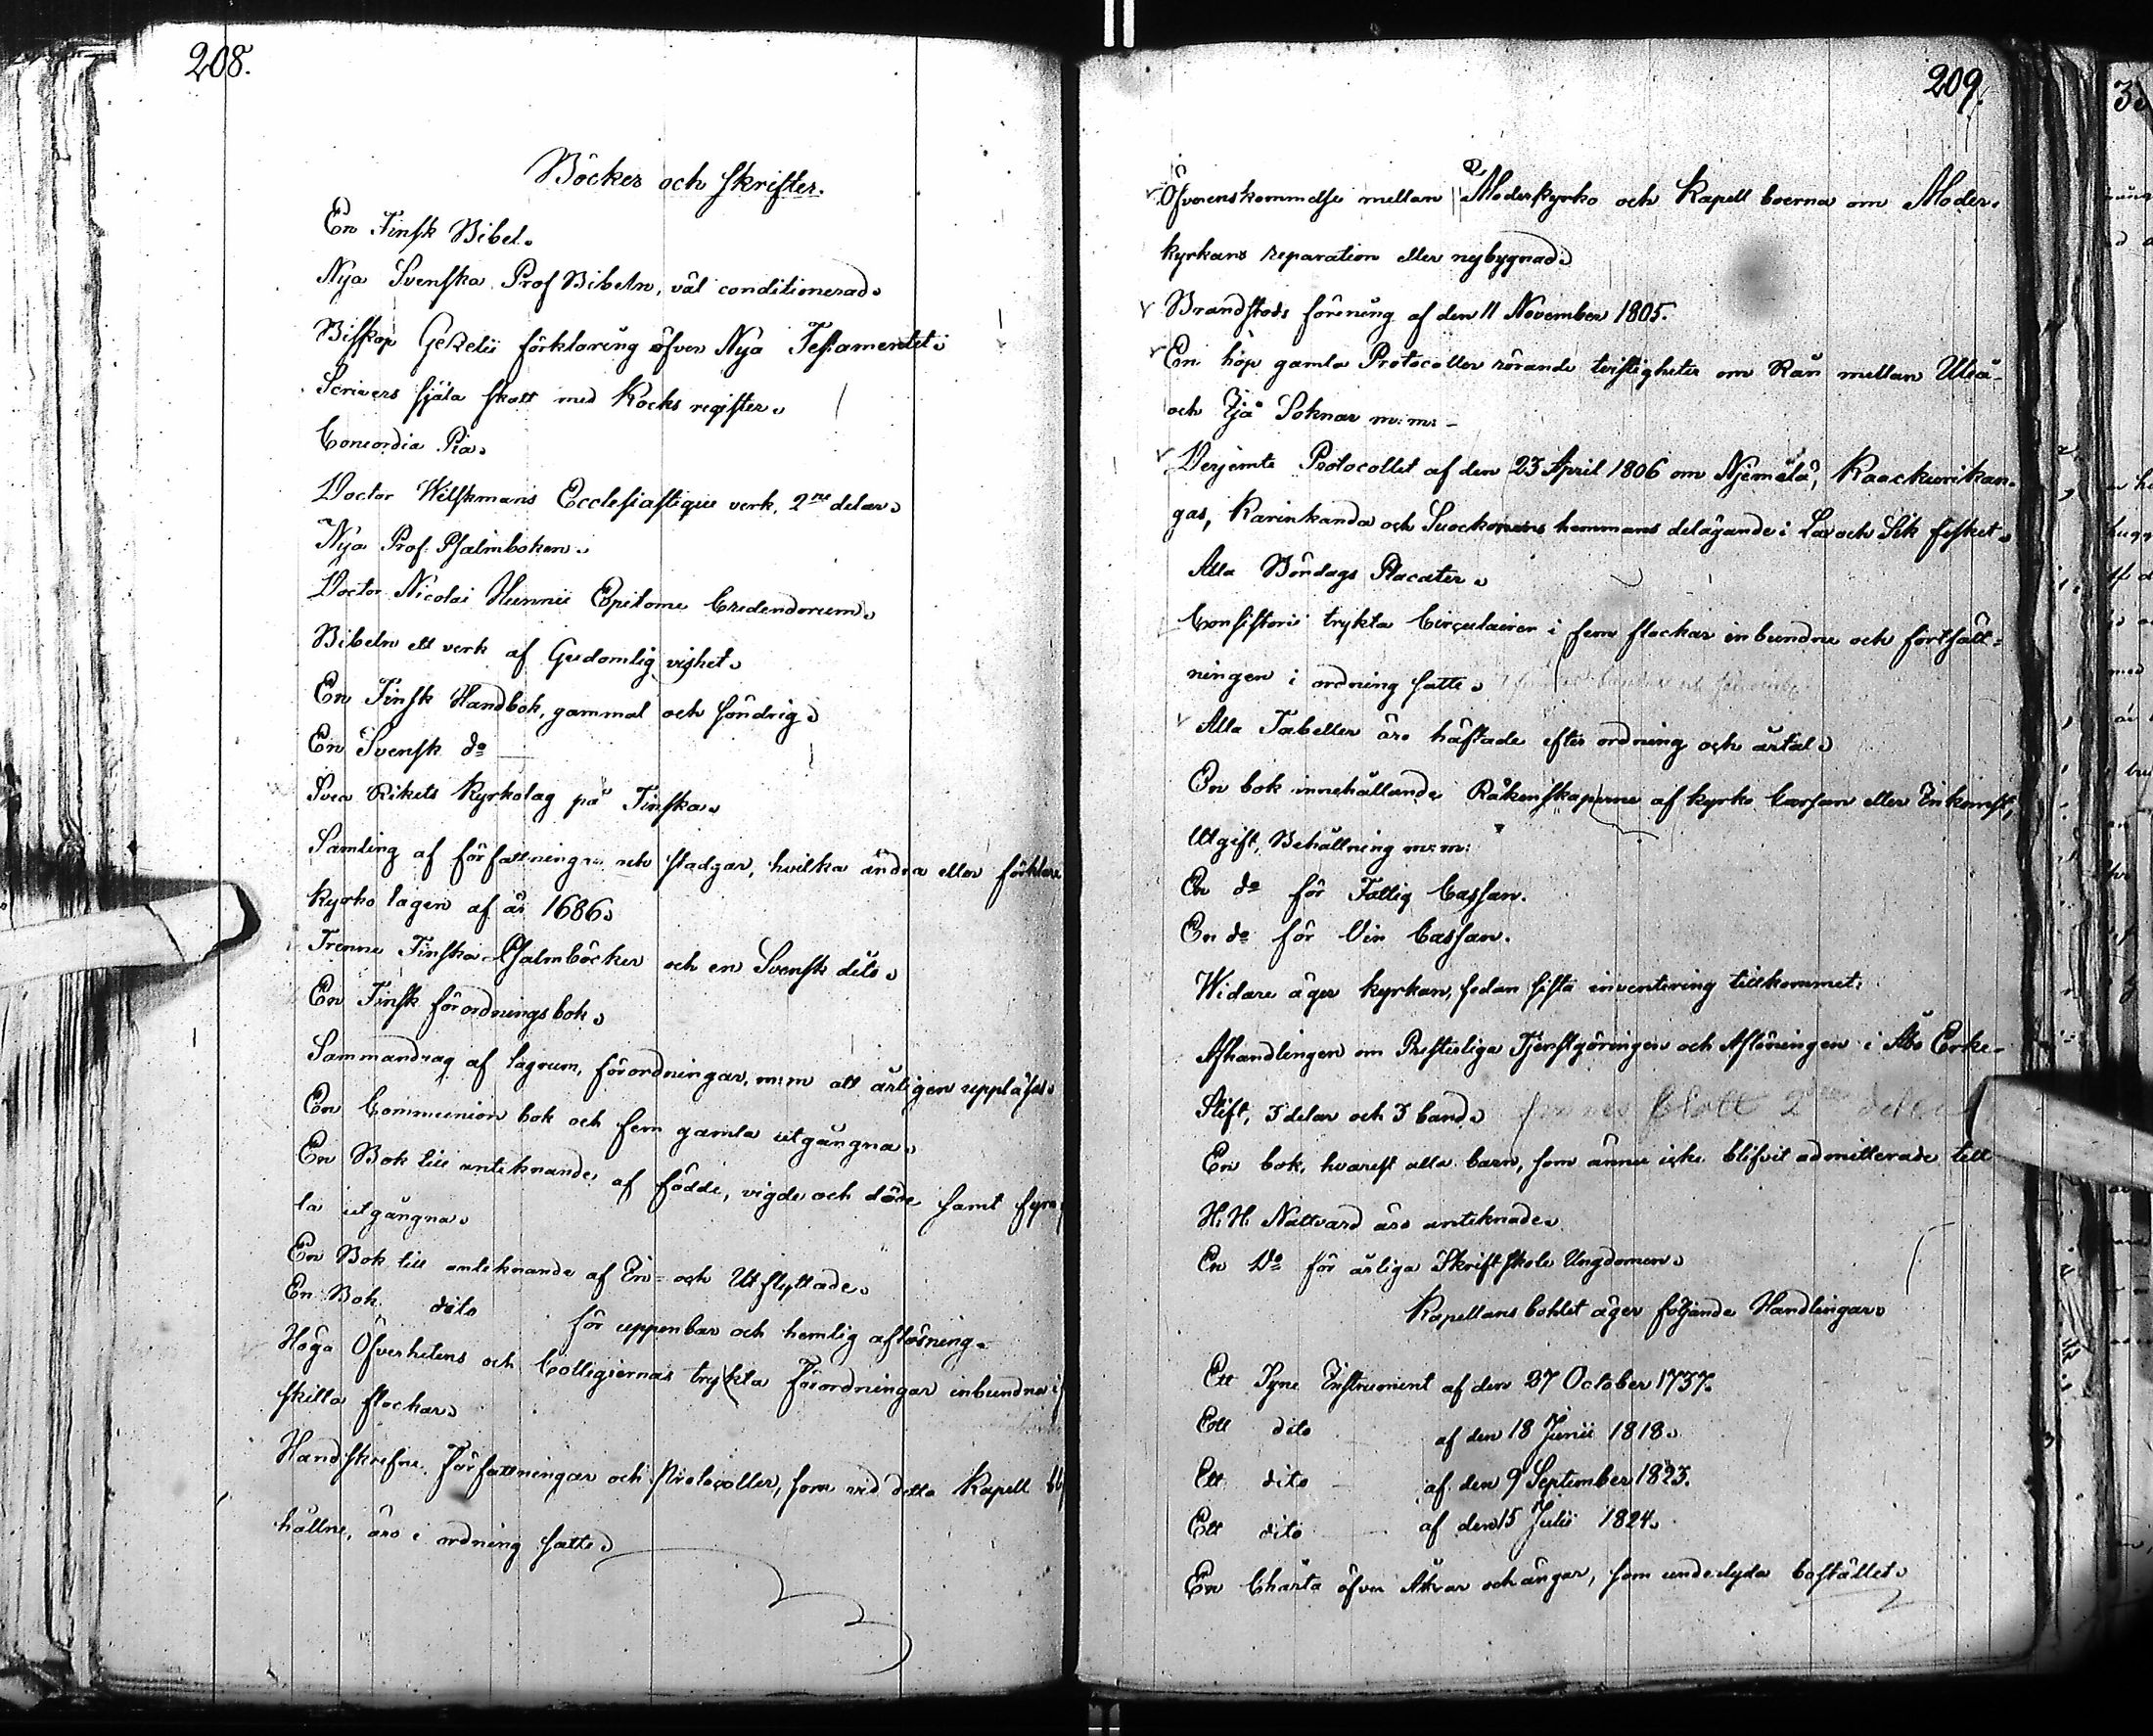 208.
Böcker och skrifter.
En Finsk Bibel.
Nya Svenska Prof Bibeln, väl conditionerad.
Biskop Gezelii förklaring öfver Nya Testamentet.
Scrivers själa skatt med Kocks register.
Concordia Pia.
Doctor Wilskmans Ecclesiastique verk, 2ne delar.
Nya Prof. Psalmboken.
Doctor Nicolai Hunnii Epitome Credendorum.
Bibeln ett verk af Gudomlig vishet.
En Finsk Handbok, gammal och söndrig.
En Svensk do
Svea Rikets Kyrkolag på Finska.
Samling af författningar och stadgar, hvilka ändra eller förklara
kyrko lagen af år 1686.
Trenne Finska Psalmböcker och en Svensk dito.
En Finsk förordningsbok.
Sammandrag af lagrum, förordningar, m:m att årligen uppläsas.
En Communion bok och fem gamla utgångna.
En Bok till anteknande af födde, vigde och döde samt fyra
la utgångna.
En Bok till anteknande af In- och Utflyttade.
En Bok dito för uppenbar och hemlig aflösning.
Höga Öfverhetens och Collegiernas trykta Förordningar inbundna i
skilla flockar.
Handskrefne Författningar och Protocoller, som vid detta Kapell
hållne, äro i ordning satte.
209.
Öfverenskommelse mellan Moderkyrko och Kapell boerna om Moder-
kyrkans reparation eller nybygnad.
Brandstods förening af den 11 November 1805.
En hop gamla Protocoller rörande tvistigheter om Rån mellan Uleå-
och Ijå Soknar m:m: -
Verjemte Protocollet af den 23 April 1806 om Njemälä, Kaackurikan-
gas, Karinkanda och Suockonens hemmans delägande i Lax och Sik fisket.
Alla Böndags Placater.
Consistorii trykta Circulairer i fem flockar inbundne och fortsätt-
ningen i ordning satte.
Alla Tabeller äro häftade efter ordning och årtal.
En bok innehållande Räkenskaperne af kyrko Cassan eller Inkomst,
Utgift, Behållning m:m:
En do för Fattig Cassan.
En do för Vin Cassan.
Widare äger kyrkan, sedan sista inventering tillkommet:
Afhandlingen om Presterliga Tjenstgöringen och Aflöningen i Åbo Erke-
Stift, 3 delar och 3 band. finnes blott 2 delar
En bok, hvarest alla barn, som ännu icke blifvit admitterade till
H. H. Nattvard äro anteknade.
En Do för årliga Skriftskole Ungdomen.
Kapellans bohlet äger följande Handlingar.
Ett Syne Instrument af den 27 October 1737.
Ett dito af den 18 Junii 1818.
Ett dito af den 9 September 1823.
Ett dito af den 15 Julii 1824.
En Charta öfver Åkrar och ängar, som underlyda bostället.